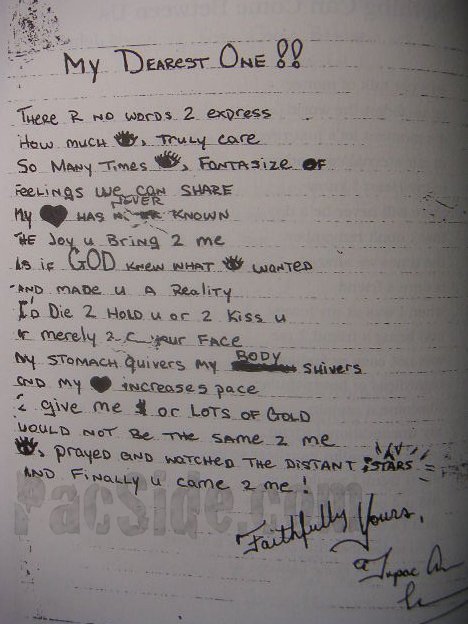 My Dearest One !!
There R no words 2 express
How much 👁, truly care
So Many Times 👁, fantasize of
feelings we can share
My ♥ has never known
The Joy u Bring 2 me
As if GOD knew what 👁 wanted
and made u a Reality
I'd Die 2 Hold u or 2 Kiss u
or merely 2 C your face
my stomach quivers my BODY shivers
and my ♥ increases pace
2 give me $ or lots of Gold
would not be the same 2 me
👁, prayed and watched the distant stars
and finally u came 2 me!
Faithfully Yours,
Tupac
PacSide.com